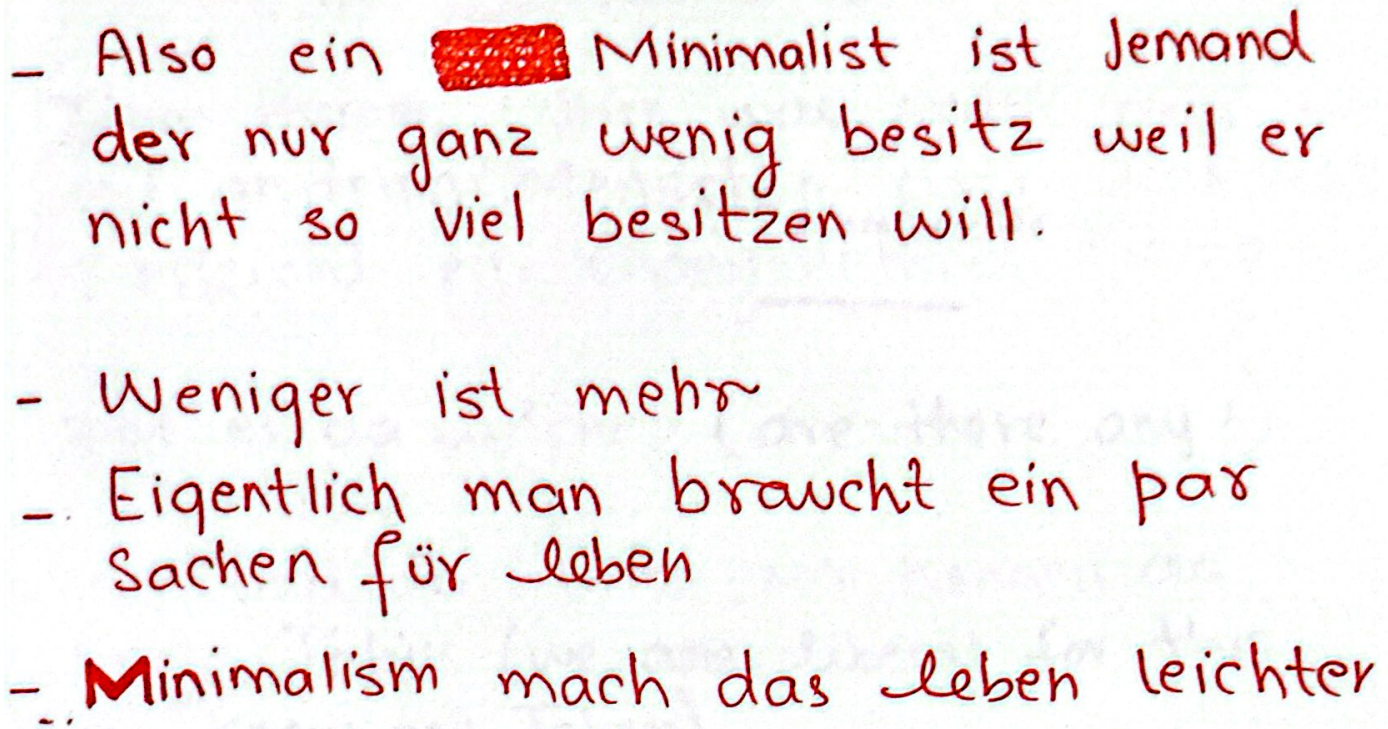 - Also ein Minimalist ist Jemand
der nur ganz wenig besitz weil er
nicht so viel besitzen will.
- Weniger ist mehr
- Eigentlich man braucht ein par
Sachen für leben
- Minimalism mach das leben leichter